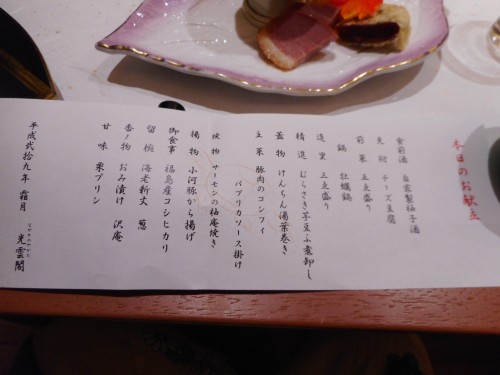 本日のお献立
食前酒 自家製柚子酒
先附 チーズ豆腐
前菜 五点盛り
鍋 牡蠣鍋
造里 三点盛り
精進 むらさき芋豆ふ煮卸し
蓋物 けんちん湯葉巻き
主菜 豚肉のコンフィ
パプリカソース掛け
焼物 サーモンの柚庵焼き
揚物 小河豚から揚げ
御食事 福島産コシヒカリ
留椀 海老新丈 葱
香ノ物 おみ漬け 沢庵
甘味 栗プリン
平成弐拾九年 霜月
光雲閣